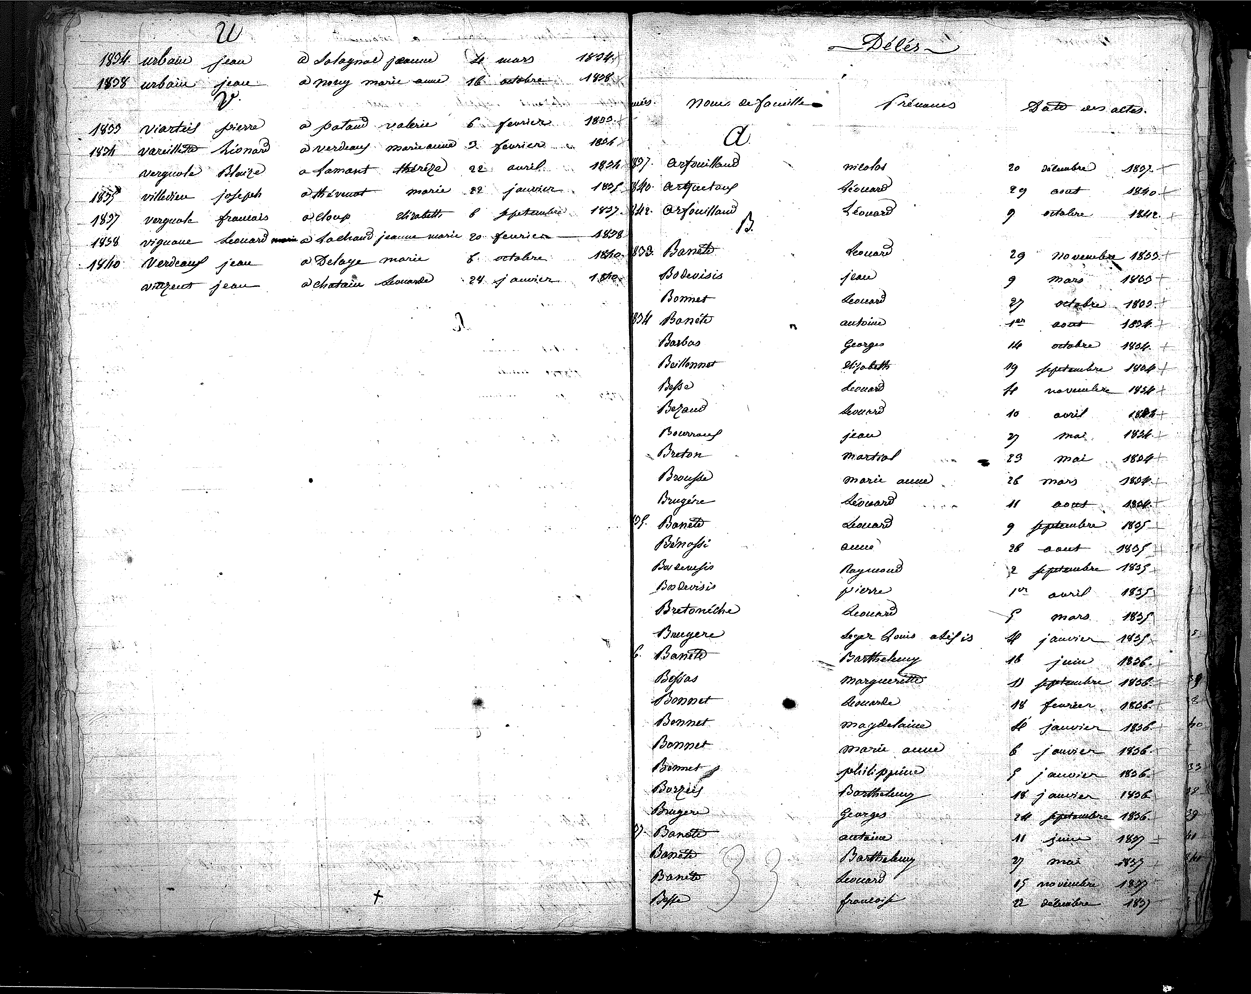 U
1834 urbain jean a Salagnat jeanne 4 mars 1834
1838 urbain jean a nouy marie anne 16 octobre 1838
V.
1833 viarteis pierre a pataud valerie 6 fevrier 1833
1834 vareillette Léonard a verdeaux marie anne 2 fevrier 1834
vergnole Blaize a Lamant thérèze 22 avril 1834
1835 villedieu joseph a thévenot marie 22 janvier 1835
1837 vergnole francois a cloup Elizabeth 6 septembre 1837
1838 vignane Léonard marie a Lachaud jeanne marie 20 fevrier 1838
1840 Verdeaux jean a Delage marie 6 octobre 1840
vinzent jean a chatain Léonarde 24 janvier 1840
Décès
nées. Noms de famille Prénoms Date des actes.
A
837. arfouilland nicolas 20 décembre 1837
840. Léonard 29 aout 1840
842. arfouilland Léonard 9 octobre 1842
B.
1833 Banête Léonard 29 novembre 1833
Bodevisis jean 9 mars 1833
Bonnet Léonard 27 octobre 1833
834 Banête antoine 1er aout 1834
Barbas Georges 14 octobre 1834
Beillonnet Elizabeth 19 septembre 1834
Besse Léonard 4 novembre 1834
Bezaud Léonard 10 avril 1834
Bourroux jean 27 mai 1834
Breton martial 23 mai 1834
Brousse marie anne 26 mars 1834
Brugére Léonard 11 aout 1834
35. Banête Léonard 9 septembre 1835
Bénassi anne 28 aout 1835
Bordevesis Raymond 2 septembre 1835
Bordevisis pierre 1er avril 1835
Bretonéche Léonard 5 mars 1835
Brugere Leger Louis 4 janvier 1835
6. Banête Barthelemy 16 juin 1836
Bessas marguerite 11 septembre 1836
Bonnet Léonarde 18 fevrier 1836
Bonnet magdelaine 4 janvier 1836
Bonnet marie anne 6 janvier 1836
Bonnet philippine 5 janvier 1836
Borzeis Barthelemy 18 janvier 1836
Brugere Georges 24 septembre 1836
37. Banête antoine 11 juin 1837
Banête Barthelemy 27 mai 1837
Banête Léonard 15 novembre 1837
Besse francois 22 décembre 1837
33